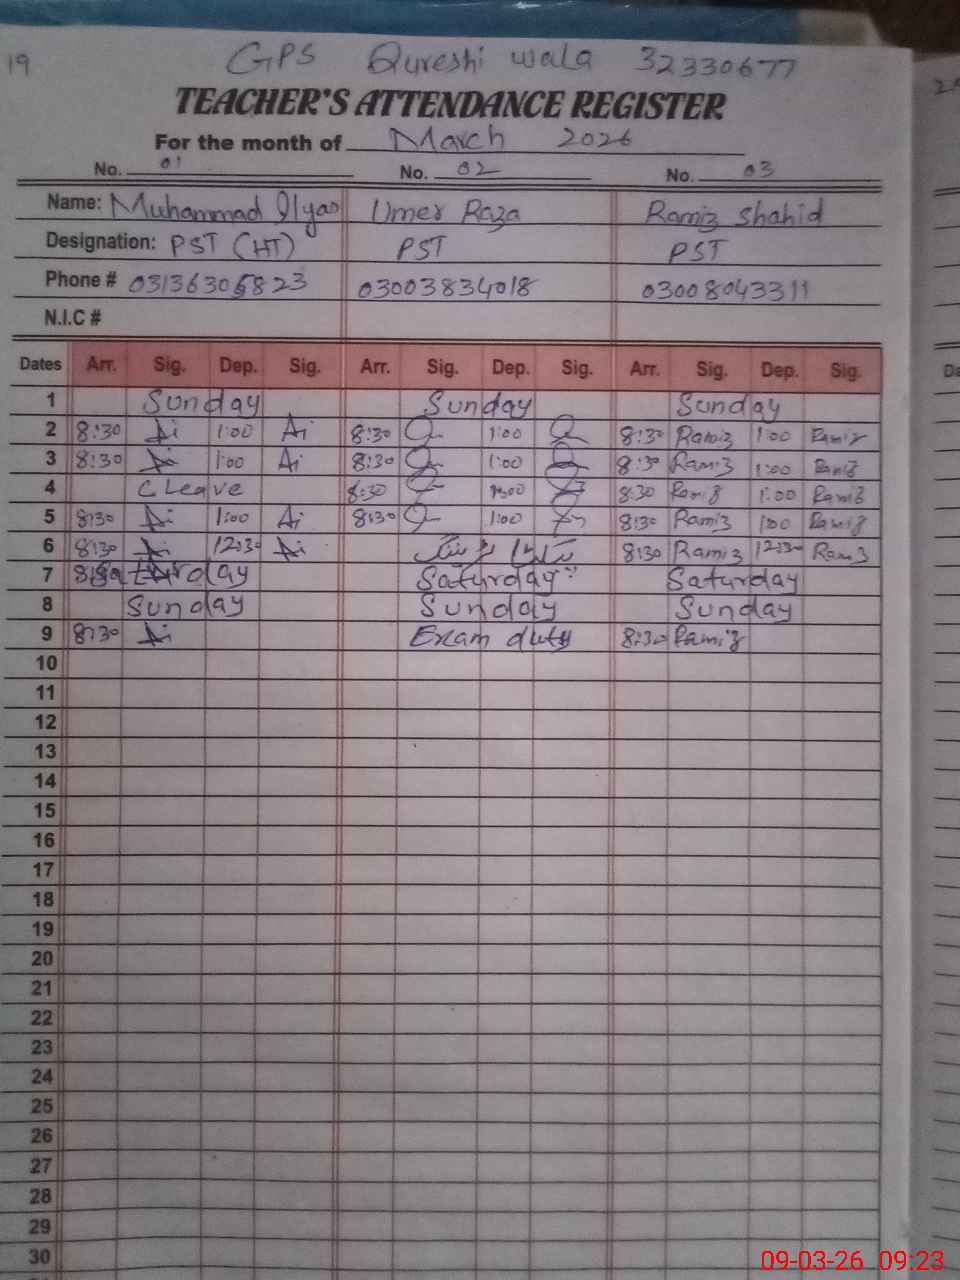 19 GPS Qureshi wala 32330677
TEACHER'S ATTENDANCE REGISTER
For the month of March 2026
No. 01 No. 02 No. 03
Name: Muhammad Ilyas Umer Raza Ramiz Shahid
Designation: PST (HT) PST PST
Phone # 03136305823 03003834018 03008043311
N.I.C #
Dates Arr. Sig. Dep. Sig. Arr. Sig. Dep. Sig. Arr. Sig. Dep. Sig.
1 Sunday Sunday Sunday
2 8:30 1:00 8:30 1:00 8:30 Ramiz 1:00 Ramiz
3 8:30 1:00 8:30 1:00 8:30 Ramiz 1:00 Ramiz
4 C Leave 8:30 1:00 8:30 Ramiz 1:00 Ramiz
5 8:30 1:00 8:30 1:00 8:30 Ramiz 1:00 Ramiz
6 8:30 12:30 8:30 Ramiz 12:30 Ramiz
7 Saturday Saturday Saturday
8 Sunday Sunday Sunday
9 8:30 Exam duty 8:30 Ramiz
10
11
12
13
14
15
16
17
18
19
20
21
22
23
24
25
26
27
28
29
30
09-03-26 09:23